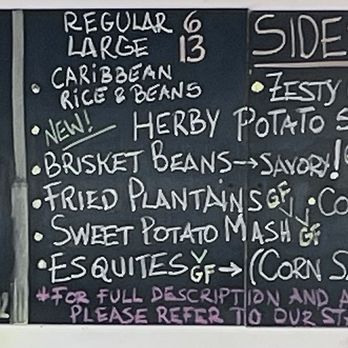 REGULAR 6
LARGE 13
SIDE
• CARIBBEAN
RICE & BEANS
• ZESTY
• NEW! HERBY POTATO S
• BRISKET BEANS → SAVORY!
• FRIED PLANTAINS GF V • CO
• SWEET POTATO MASH V GF
• ESQUITES V GF → (CORN S
*FOR FULL DESCRIPTION AND A
PLEASE REFER TO OUR ST